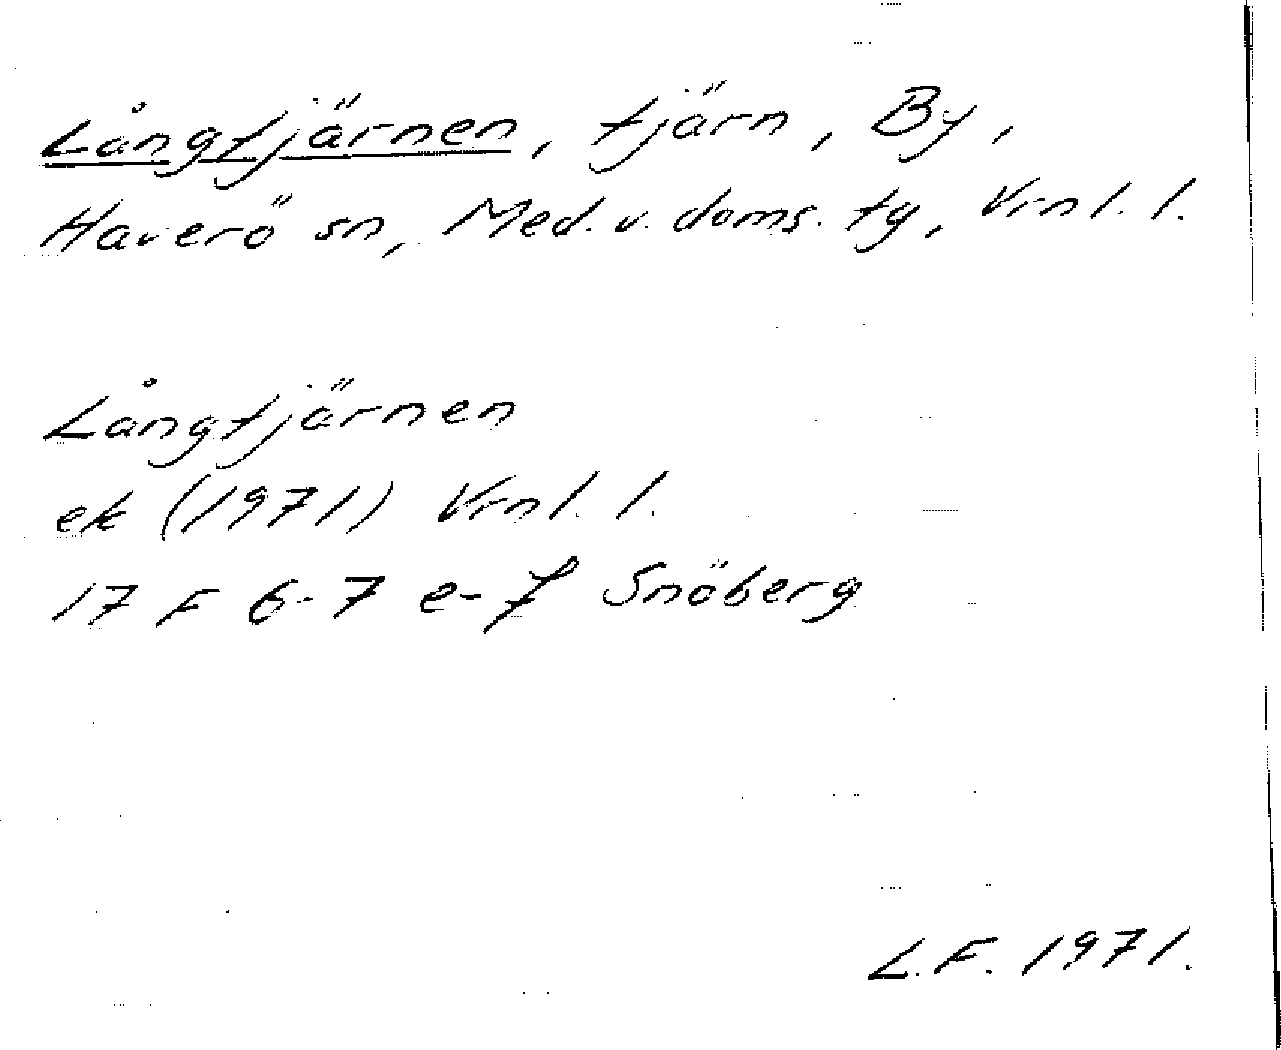 Långtjärnen, tjärn, By,
Haverö sn, Med. v. doms. tg, Vrnl. l.
Långtjärnen
ek (1971) Vrnl. l.
17 F 6-7 e-f Snöberg
L.F. 1971.